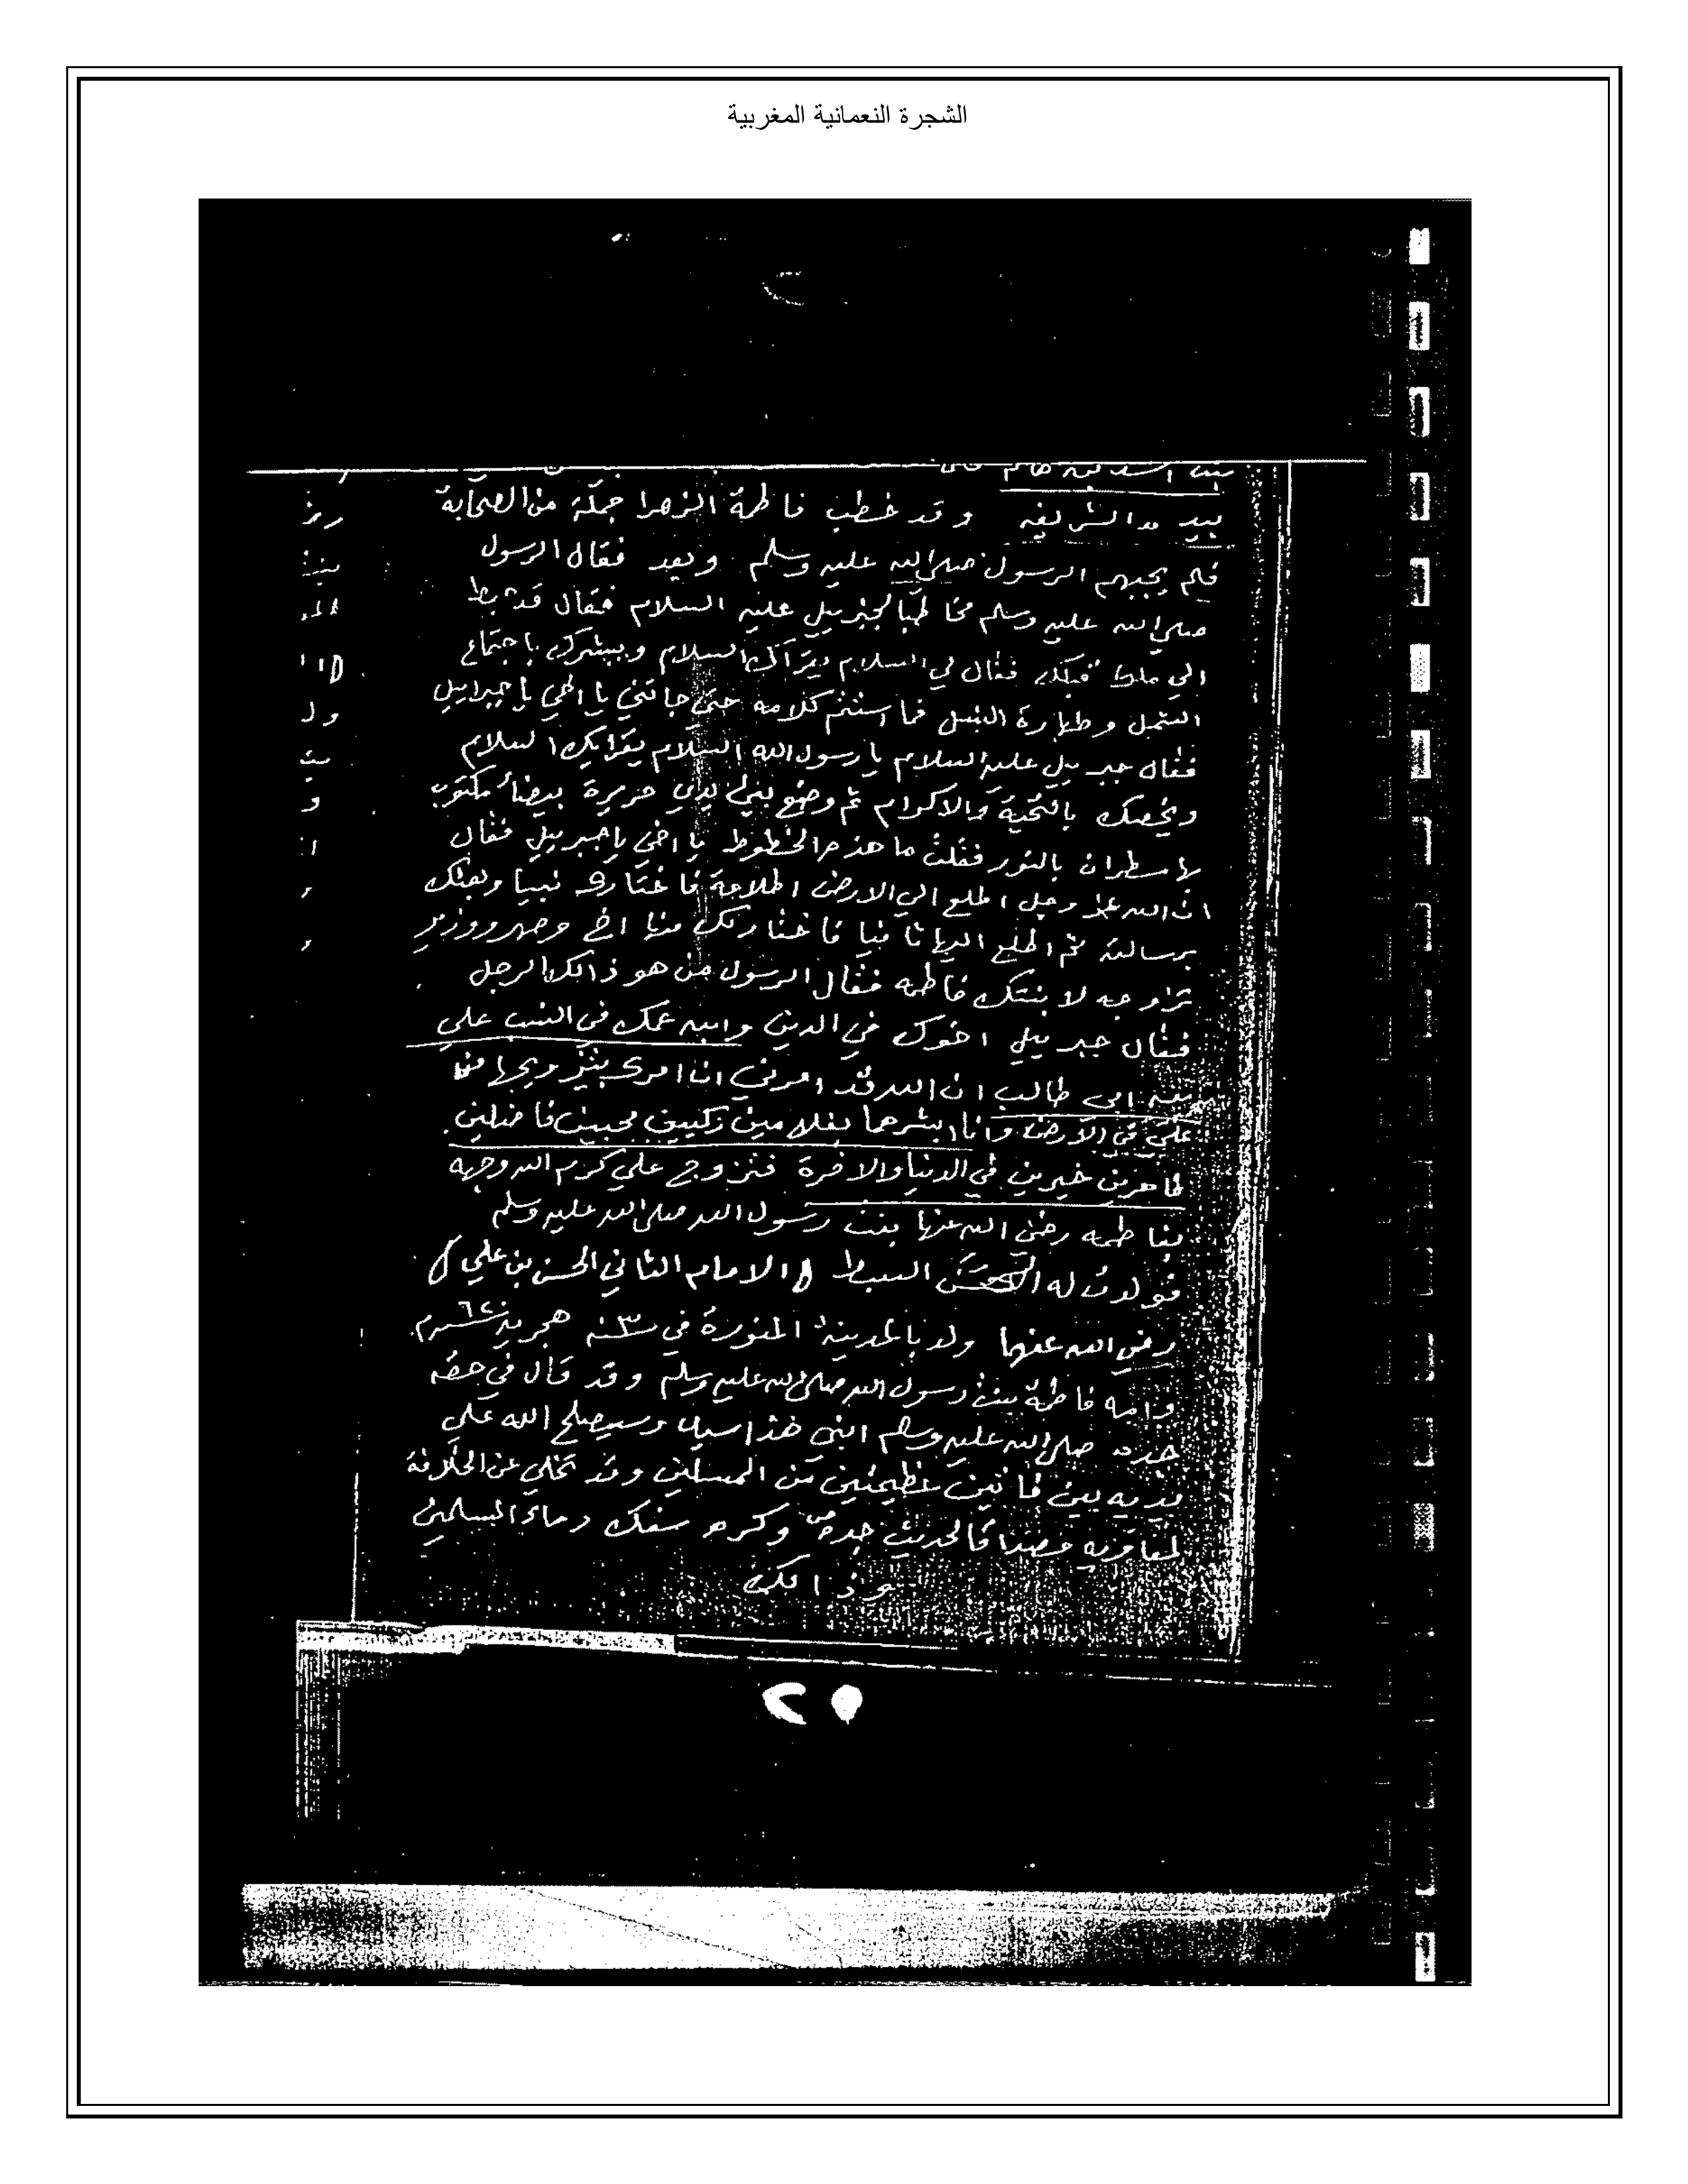 الشجرة النعمانية المغربية
بيده الشريفه وقد خطب فاطمة الزهرا جملة من الصحابة
فلم يجبهم الرسول صلى الله عليه وسلم وبعد فقال الرسول
صلى الله عليه وسلم مخاطبا لجبريل عليه السلام فقال قد هبط
الي ملك قبلك فقال لي السلام يقرآك السلام ويبشرك باجتماع
الشمل وطهارة النسل فما استتم كلامه حتى جاتني يا اخي يا جبرايل
فقال جبريل عليه السلام يا رسول الله السلام يقرايك السلام
ويخصك بالتحية والاكرام ثم وضع بين يدي حريرة بيضأ مكتوب
بها سطران بالنور فقلت ما هذه الخطوط يا اخي يا جبريل فقال
ان الله عز وجل اطلع الي الارض اطلاعة فاختارك نبيا وبعثك
برسالته ثم اطلع اليها ثانيا فاختار لك منها اخ وصهر ووزير
تزاوجه لابنتك فاطمه فقال الرسول من هو ذالك الرجل
فقال جبريل اخوك في الدين وابن عمك في النسب علي
ابي طالب ان الله قد امرني ان امرك
علي في الارض وانا ابشرهما بغلامين زكيين محبين فاضلين
طاهرين خيرين في الدنيا والاخرة فتزوج علي كرم الله وجهه
بفاطمه رضي الله عنها بنت رسول الله صلى الله عليه وسلم
فولدت له الحسن السبط (الامام الثاني الحسن بن علي)
رضي الله عنهما ولد بالمدينة المنورة في سنة ٣ هجرية
وامه فاطمة بنت رسول الله صلى الله عليه وسلم وقد قال في حقه
جده صلى الله عليه وسلم ابني هذا سيد وسيصلح الله علي
يديه بين فأتين عظيمتين من المسلمين وقد تخلي عن الخلافة
لمعاويه مصداقا لحديث جده ص وكره سفك دماء المسلمين
وذالك
٢٥